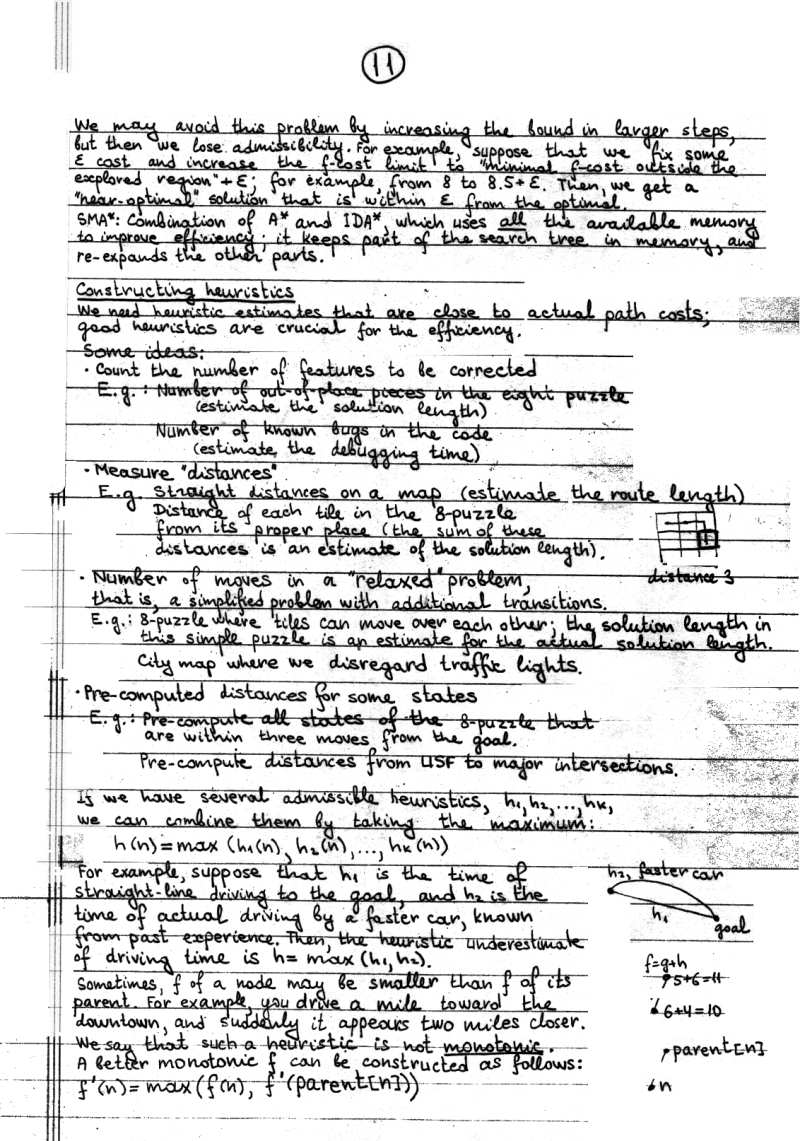 11
We may avoid this problem by increasing the bound in larger steps,
but then we lose admissibility. For example, suppose that we fix some
ε cost and increase the f-cost limit to "minimal f-cost outside the
explored region" + ε; for example, from 8 to 8.5+ε. Then, we get a
"near-optimal" solution that is within ε from the optimal.
SMA*: Combination of A* and IDA*, which uses all the available memory
to improve efficiency; it keeps part of the search tree in memory, and
re-expands the other parts.
Constructing heuristics
We need heuristic estimates that are close to actual path costs;
good heuristics are crucial for the efficiency.
Some ideas:
· Count the number of features to be corrected
E.g.: Number of out-of-place pieces in the eight puzzle
(estimate the solution length)
Number of known bugs in the code
(estimate the debugging time)
· Measure "distances"
E.g. Straight distances on a map (estimate the route length)
Distance of each tile in the 8-puzzle
from its proper place (the sum of these
distances is an estimate of the solution length).
1
distance 3
· Number of moves in a "relaxed" problem,
that is, a simplified problem with additional transitions.
E.g.: 8-puzzle where tiles can move over each other; the solution length in
this simple puzzle is an estimate for the actual solution length.
City map where we disregard traffic lights.
· Pre-computed distances for some states
E.g.: Pre-compute all states of the 8-puzzle that
are within three moves from the goal.
Pre-compute distances from USF to major intersections.
If we have several admissible heuristics, h1, h2, ..., hk,
we can combine them by taking the maximum:
h(n) = max (h1(n), h2(n), ..., hk(n))
For example, suppose that h1 is the time of
straight-line driving to the goal, and h2 is the
time of actual driving by a faster car, known
from past experience. Then, the heuristic underestimate
of driving time is h = max (h1, h2).
h2, faster car
h1
goal
Sometimes, f of a node may be smaller than f of its
parent. For example, you drive a mile toward the
downtown, and suddenly it appears two miles closer.
We say that such a heuristic is not monotonic.
A better monotonic f can be constructed as follows:
f'(n) = max (f(n), f'(parent[n]))
f=g+h
5+6=11
6+4=10
parent[n]
n